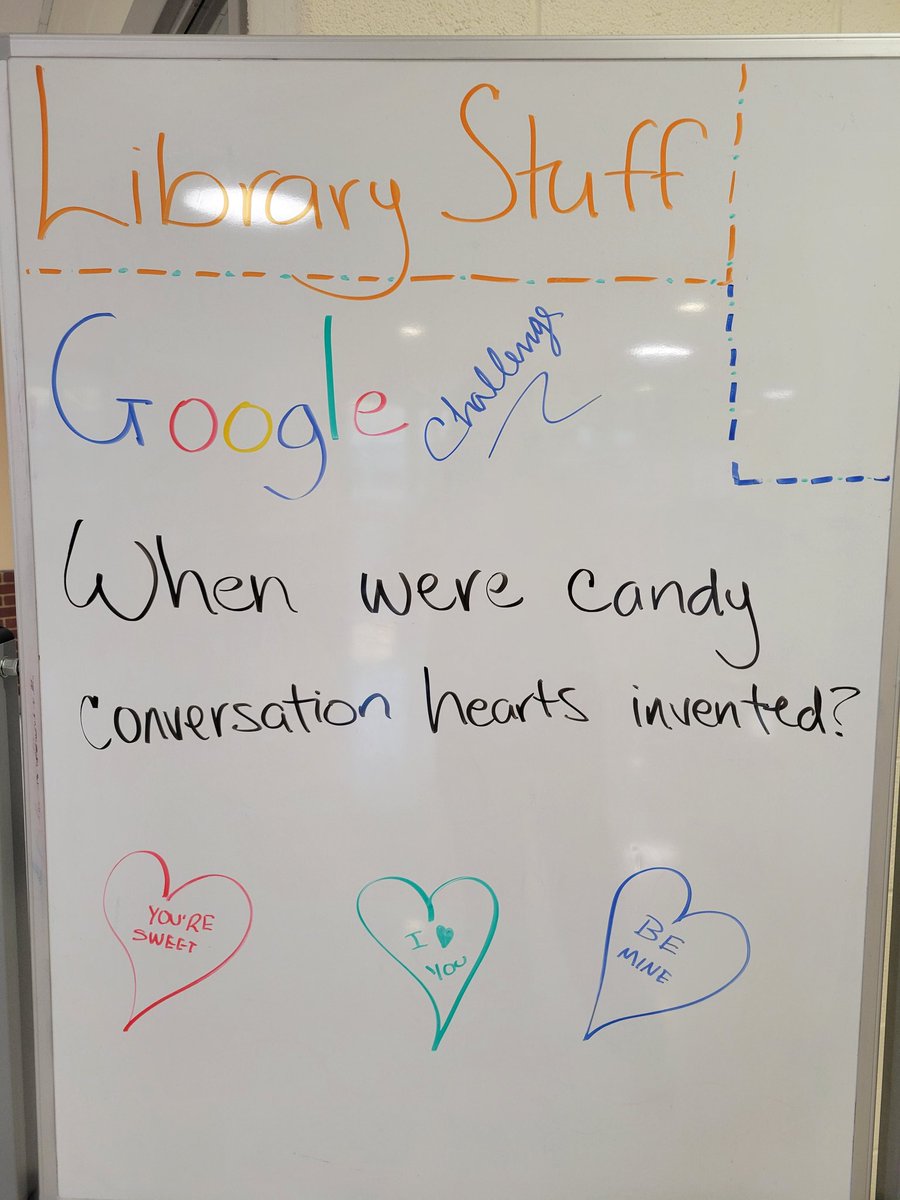 Library Stuff
Google Challenge
When were candy
conversation hearts invented?
YOU'RE
SWEET
I ♥
YOU
BE
MINE